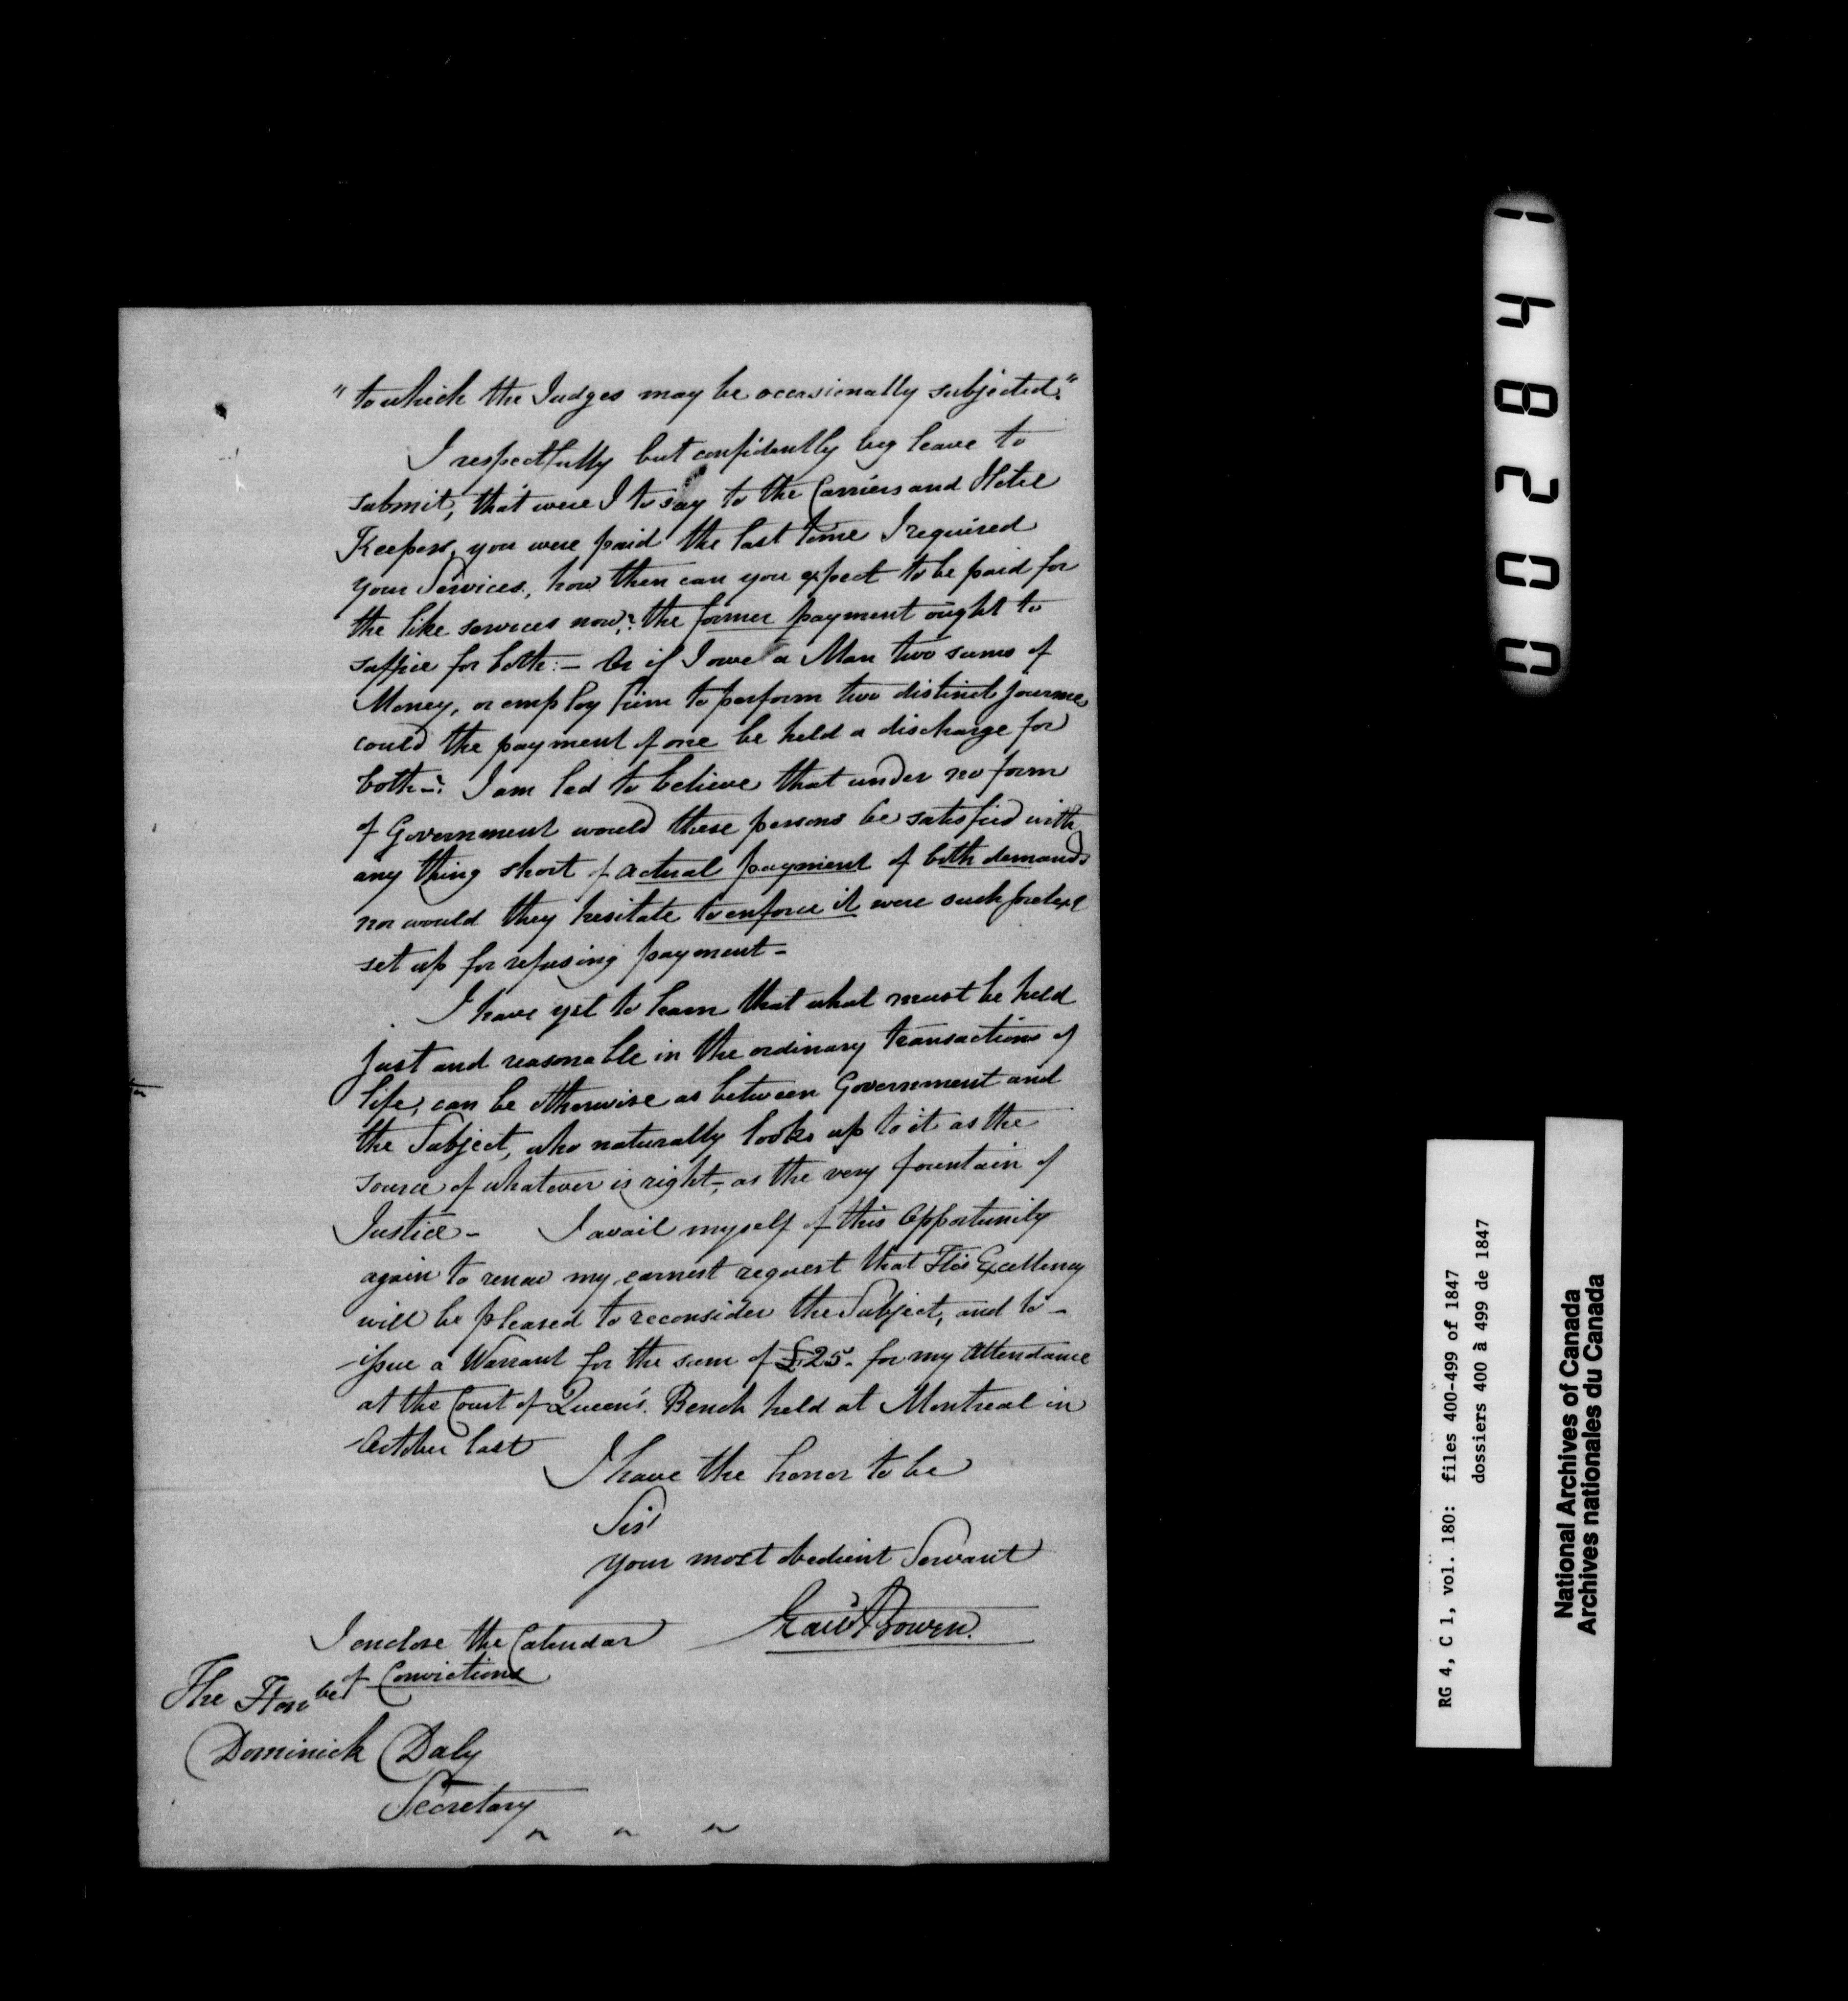 "to which the Judges may be occasionally subjected."
I respectfully but confidently beg leave to
submit, that were I to say to the Carriers and Hotel
Keepers, you were paid the last time I required
your Services, how then can you expect to be paid for
the like services now? the former payment ought to
suffice for both:- Or if I owe a Man two sums of
Money, or employ him to perform two distinct journies
could the payment of one be held a discharge for
both-? I am led to believe that under no form
of Government would these persons be satisfied with
any thing short of actual payment of both demands
nor would they hesitate to enforce it were such pretext
set up for refusing payment-
I have yet to learn that what must be held
just and reasonable in the ordinary transactions of
life, can be otherwise as between Government and
the Subject, who naturally looks up to it as the
source of whatever is right-, as the very fountain of
Justice- I avail myself of this Opportunity
again to renew my earnest request that His Excellency
will be pleased to reconsider the Subject, and to-
issue a Warrant for the sum of £25- for my Attendance
at the Court of Queen's Bench held at Montreal in
October last
I have the honor to be
Sir
your most obedient Servant
Edwd Bowen.
I enclose the Calendar
of Convictions
The Honble
Dominick Daly
Secretary
" " "
002841
RG 4, C 1, vol. 180: files 400-499 of 1847
dossiers 400 à 499 de 1847
National Archives of Canada
Archives nationales du Canada